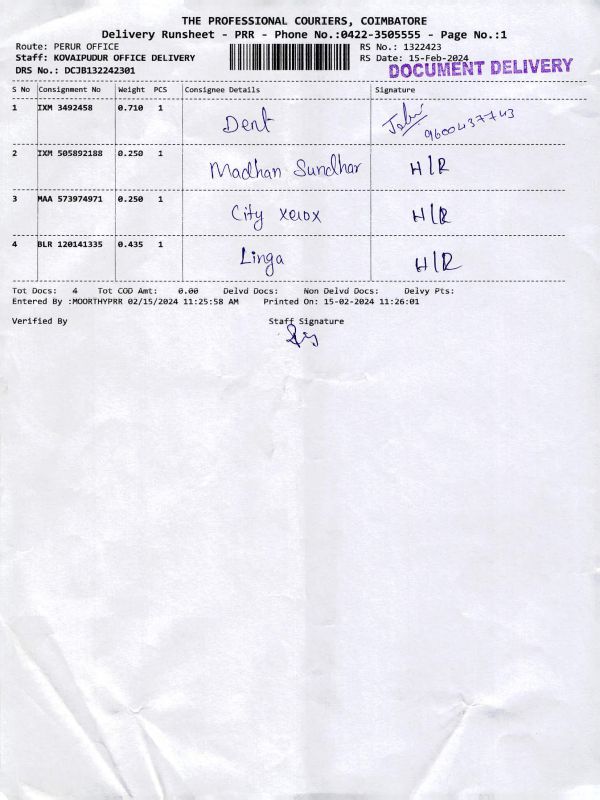 THE PROFESSIONAL COURIERS, COIMBATORE
Delivery Runsheet - PRR - Phone No.:0422-3505555 - Page No.:1
Route: PERUR OFFICE RS No.: 1322423
Staff: KOVAIPUDUR OFFICE DELIVERY RS Date: 15-Feb-2024
DRS No.: DCJB132242301 DOCUMENT DELIVERY
S No Consignment No Weight PCS Consignee Details Signature
1 IXM 3492458 0.710 1 Dent 9600437743
2 IXM 505892188 0.250 1 Madhan Sundhar H/R
3 MAA 573974971 0.250 1 City xerox H/R
4 BLR 120141335 0.435 1 Linga H/R
Tot Docs: 4 Tot COD Amt: 0.00 Delvd Docs: Non Delvd Docs: Delvy Pts:
Entered By :MOORTHYPRR 02/15/2024 11:25:58 AM Printed On: 15-02-2024 11:26:01
Verified By Staff Signature